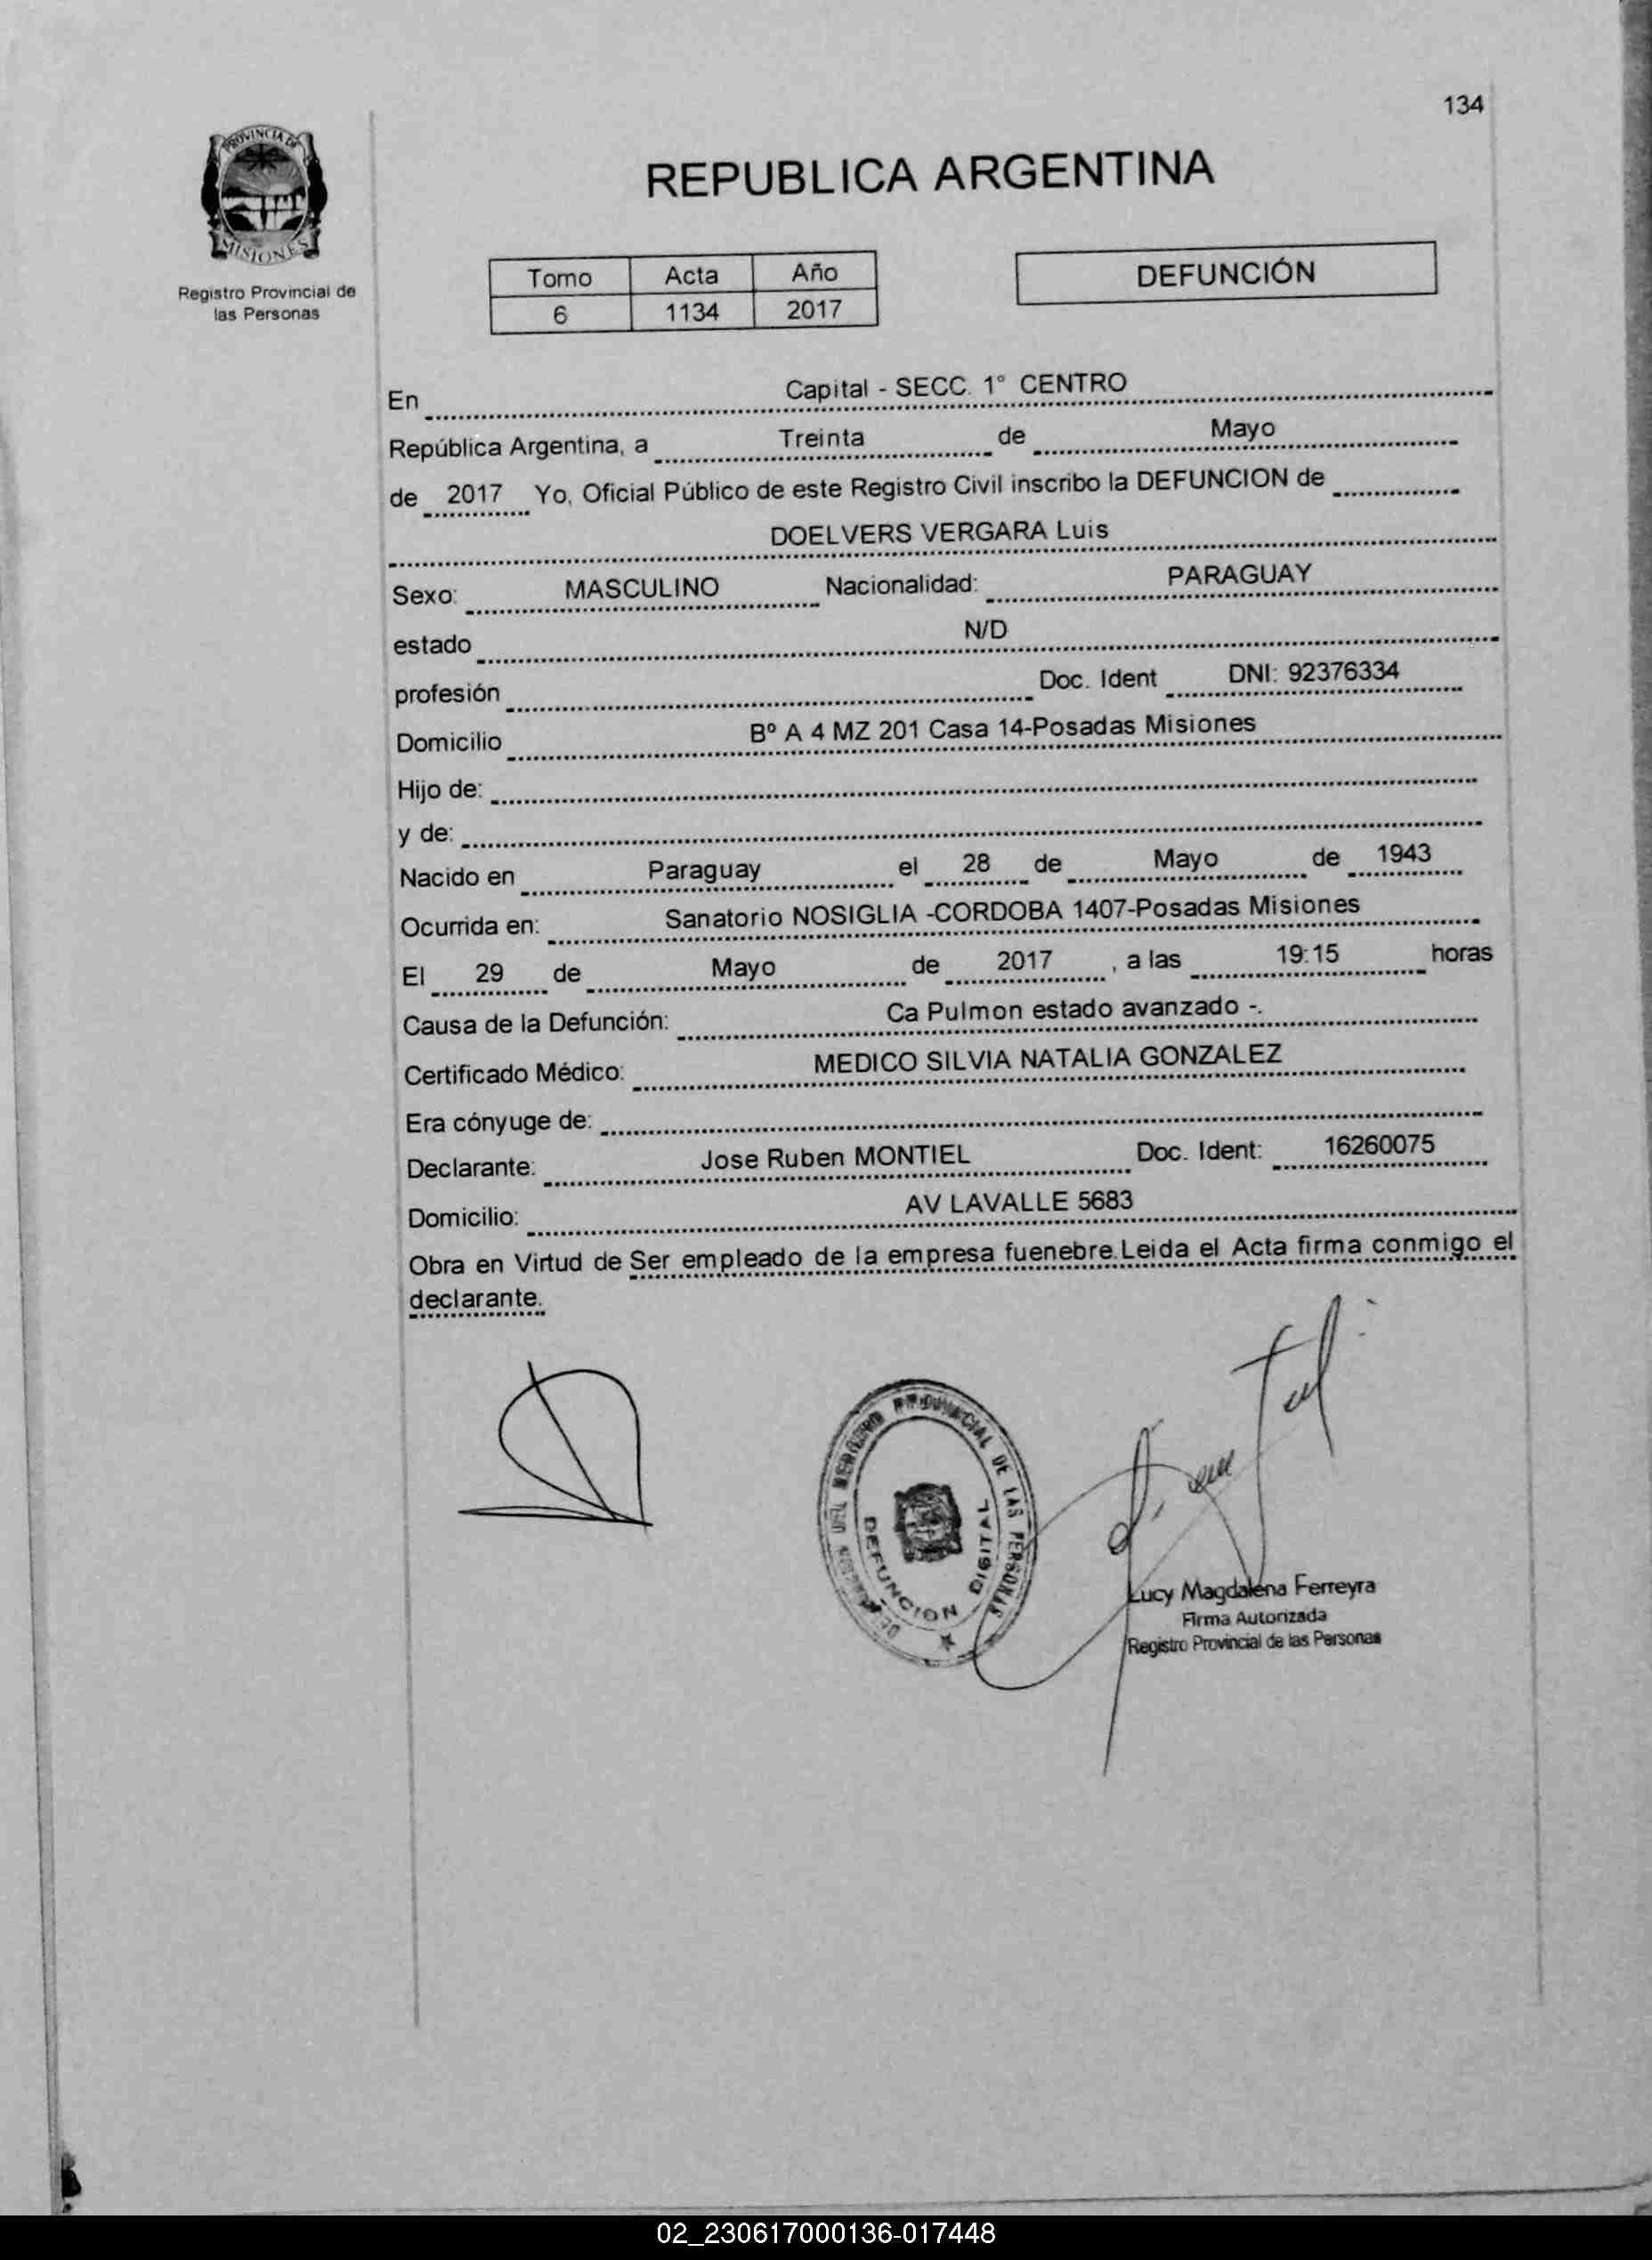 134
PROVINCIA DE
MISIONES
Registro Provincial de
las Personas
REPUBLICA ARGENTINA
Tomo Acta Año
6 1134 2017
DEFUNCIÓN
En Capital - SECC. 1° CENTRO
República Argentina, a Treinta de Mayo
de 2017 Yo, Oficial Público de este Registro Civil inscribo la DEFUNCION de
DOELVERS VERGARA Luis
Sexo: MASCULINO Nacionalidad: PARAGUAY
estado N/D
profesión Doc. Ident DNI: 92376334
Domicilio Bº A 4 MZ 201 Casa 14-Posadas Misiones
Hijo de:
y de:
Nacido en Paraguay el 28 de Mayo de 1943
Ocurrida en: Sanatorio NOSIGLIA -CORDOBA 1407-Posadas Misiones
El 29 de Mayo de 2017 , a las 19:15 horas
Causa de la Defunción: Ca Pulmon estado avanzado -.
Certificado Médico: MEDICO SILVIA NATALIA GONZALEZ
Era cónyuge de:
Declarante: Jose Ruben MONTIEL Doc. Ident: 16260075
Domicilio: AV LAVALLE 5683
Obra en Virtud de Ser empleado de la empresa fuenebre.Leida el Acta firma conmigo el
declarante.
PROVINCIAL DE LAS PERSONAS
DEFUNCION DIGITAL
Lucy Magdalena Ferreyra
Firma Autorizada
Registro Provincial de las Personas
02_230617000136-017448